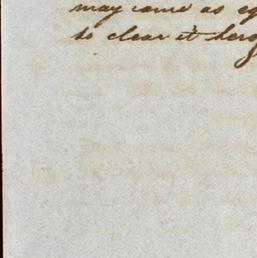 may come as eq
so clear it here